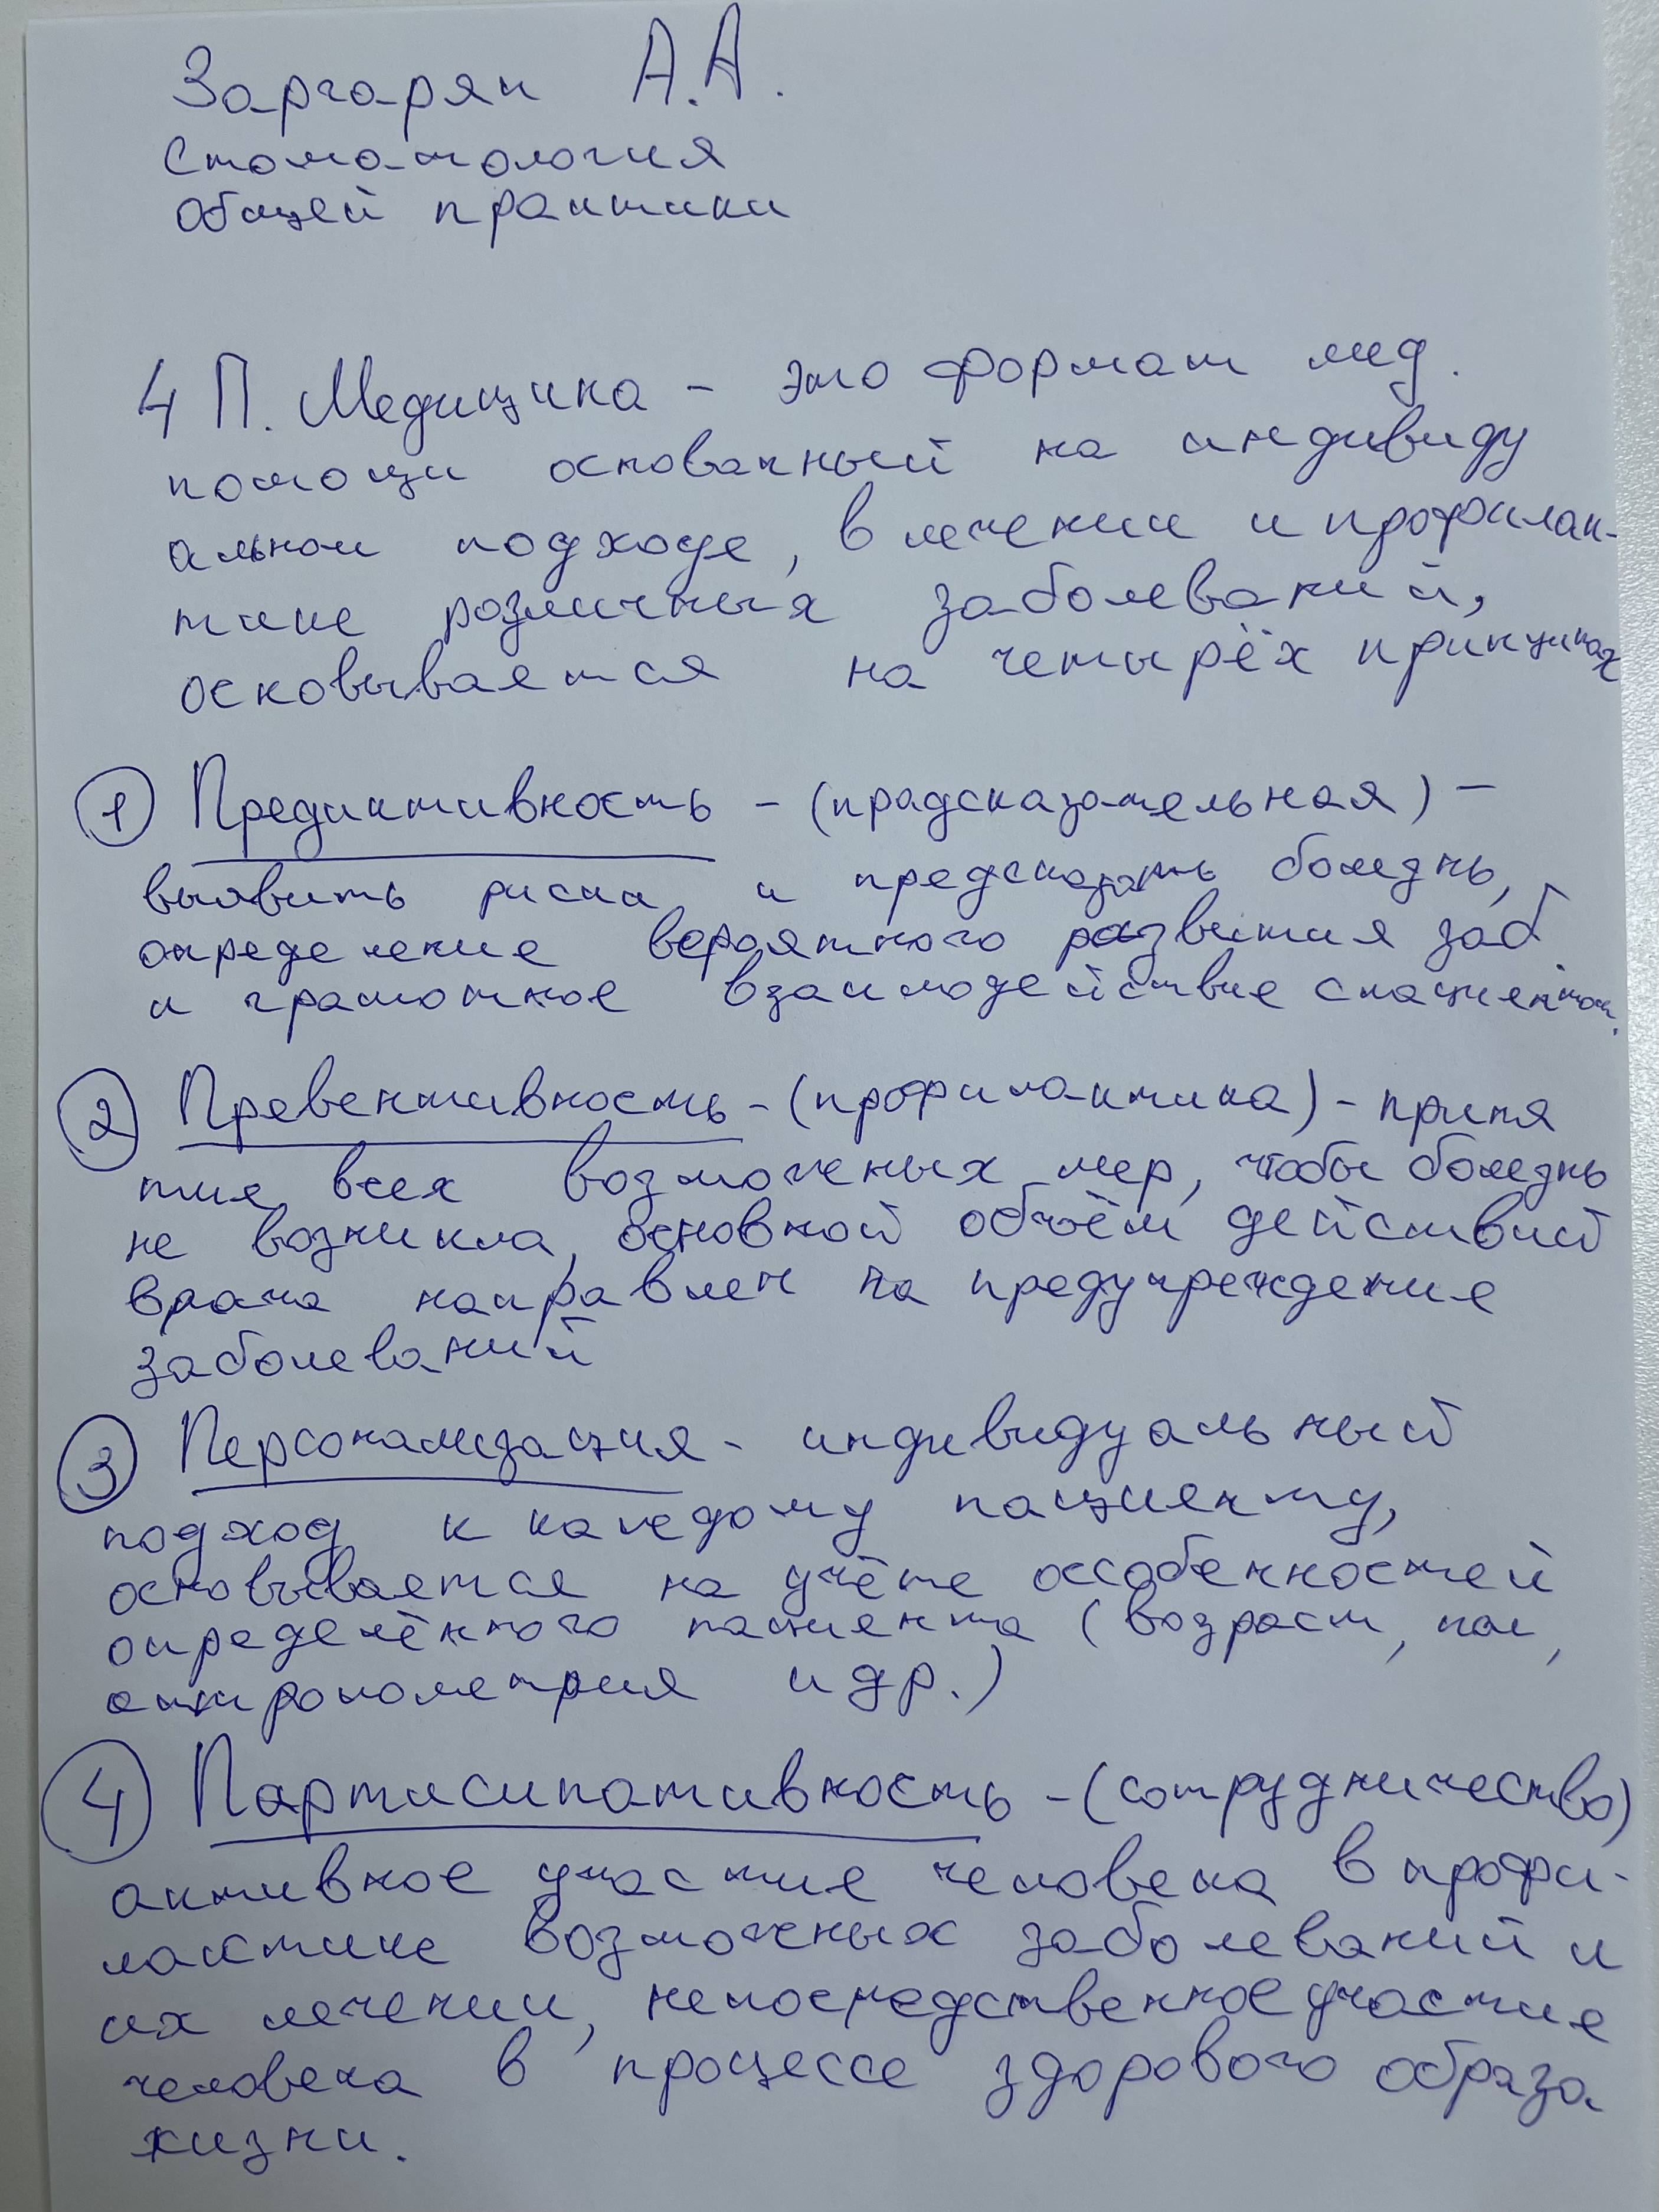 Заргарян А.А.
Стоматология
общей практики
4 П. Медицина - это формат мед.
помощи основанный на индивиду
альном подходе, в лечении и профилак-
тике различных заболеваний,
основывается на четырёх принципах
① Предиктивность - (прадсказательная) -
выявить риски и предсказать болезнь,
определение вероятного развития заб.
и грамотное взаимодействие с пациентом.
② Превентивность - (профилактика) - приня
тие всех возможных мер, чтобы болезнь
не возникла, основной объём действий
врача направлен на предупреждение
заболеваний
③ Персонализация - индивидуальный
подход к каждому пациенту,
основывается на учёте особенностей
определённого пациента (возраст, пол,
антропометрия и др.)
④ Партисипативность - (сотрудничество)
активное участие человека в профи-
лактике возможных заболеваний и
их лечении, непосредственное участие
человека в процессе здорового образа
жизни.